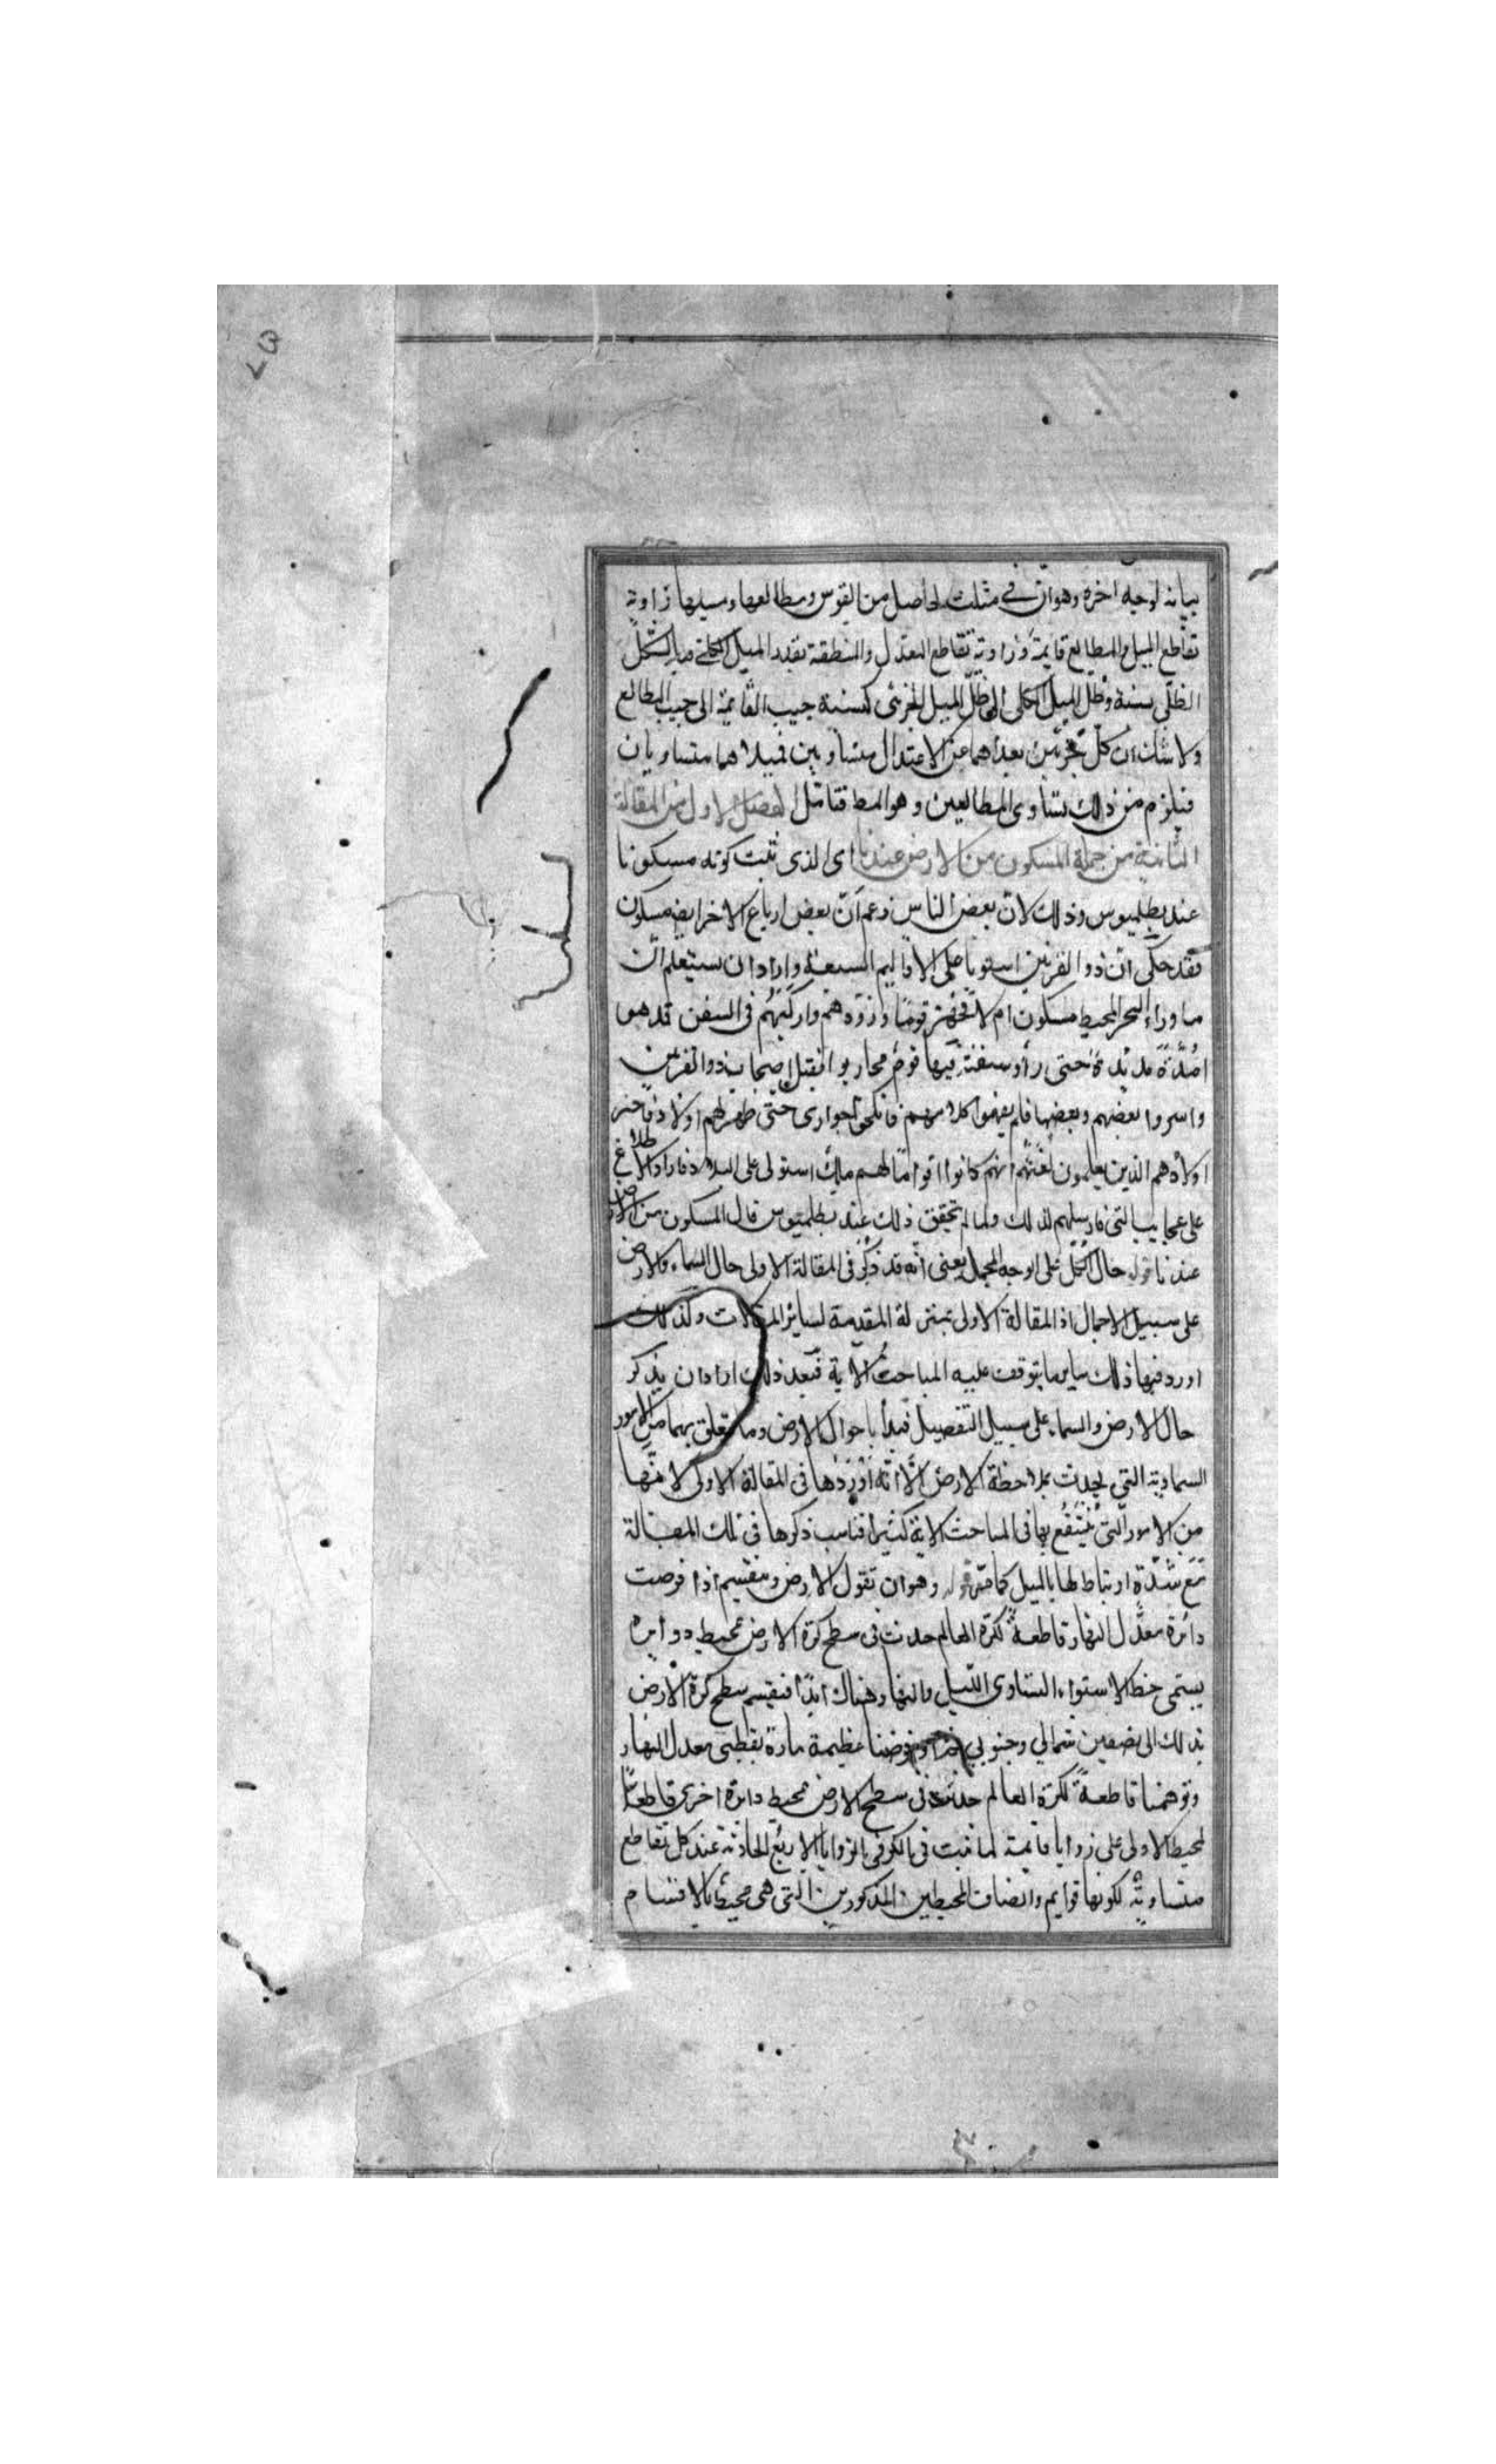 بيانه لوجه اخره وهوان في مثلث الحاصل من القوس ومطالعها وميلها زاوية
تقاطع الميل والمطالع قايمة وزاوية تقاطع المعدل والمنطقة بقدر الميل الكلى فبالشكل
الظلى نسبة وظل الميل الكلى الى ظل الميل الجزئى كنسبة جيب القايمة الى جيب المطالع
ولا شك ان كل جزئين بعداهما عن الاعتدال متساويين فميلاهما متساويان
فيلزم من ذلك تساوى المطالعين وهو المط فتامل الفصل الاول من المقالة
الثانية من جملة المسكون من الارض عندنا اى الذى ثبت كونه مسكونا
عند بطلميوس وذلك لان بعض الناس زعم ان بعض ارباع الاخر ايضا مسكون
فقد حكى ان ذو القرنين استويا على الاقاليم السبعة واراد ان يستعلم ان
ما وراء البحر المحيط مسكون ام لا فجهز قوما وزودهم واركبهم فى السفن فذهبوا
مدة مديدة حتى رأو سفنة فيها قوم محاربوا فقتل اصحاب ذو القرنين
واسروا بعضهم وبعضها فلم يفهموا كلامهم فانكحوا جوارى حتى ظهر لهم اولاد فاخبر
اولادهم الذين يعلمون لغتهم انهم كانوا اقواما لهم ملك استولى على البلاد فاراد الاطلاع
على عجايب التى فارسلهم لذلك ولما لم تحقق ذلك عند بطلميوس قال المسكون من الارض
عندنا قوله حال الكل على الوجه المجمل يعنى انه قد ذكر فى المقالة الاولى حال السماء والارض
على سبيل الاجمال اذ المقالة الاولى بمنزلة المقدمة لساير المقالات ولذلك
اورد فيها ذلك ساير ما يتوقف عليه المباحث الاتية فبعد ذلك اراد ان يذكر
حال الارض والسماء على سبيل التفصيل فبدأ باحوال الارض وما يتعلق بهما من الامور
السماوية التى يحدث بملاحظة الارض الا انه اوردها فى المقالة الاولى لانها
من الامور التى ينتفع بها فى المباحث الاتية كثيرا فناسب ذكرها فى تلك المقالة
مع شدة ارتباطها بالميل كما مر قوله وهو ان تقول الارض وينقسم اذا فرضت
دائرة معدل النهار قاطعة لكرة العالم حدثت فى سطح كرة الارض محيط دوايره
يسمى خط الاستواء لتساوى الليل والنهار هناك ابدا فينقسم سطح كرة الارض
بذلك الى نصفين شمالي وجنوبي فرضنا عظيمة مارة بقطبى معدل النهار
وتوهمنا قاطعة لكرة العالم حدثت فى سطح الارض محيط دائرة اخرى قاطعا
لمحيط الاولى على زوايا قايمة لما ثبت فى الكر فى الزوايا الاربع الحادثة عند كل تقاطع
متساوية لكونها قوايم وانصاف المحيطين المذكورين التى هى محيط بالاقسام